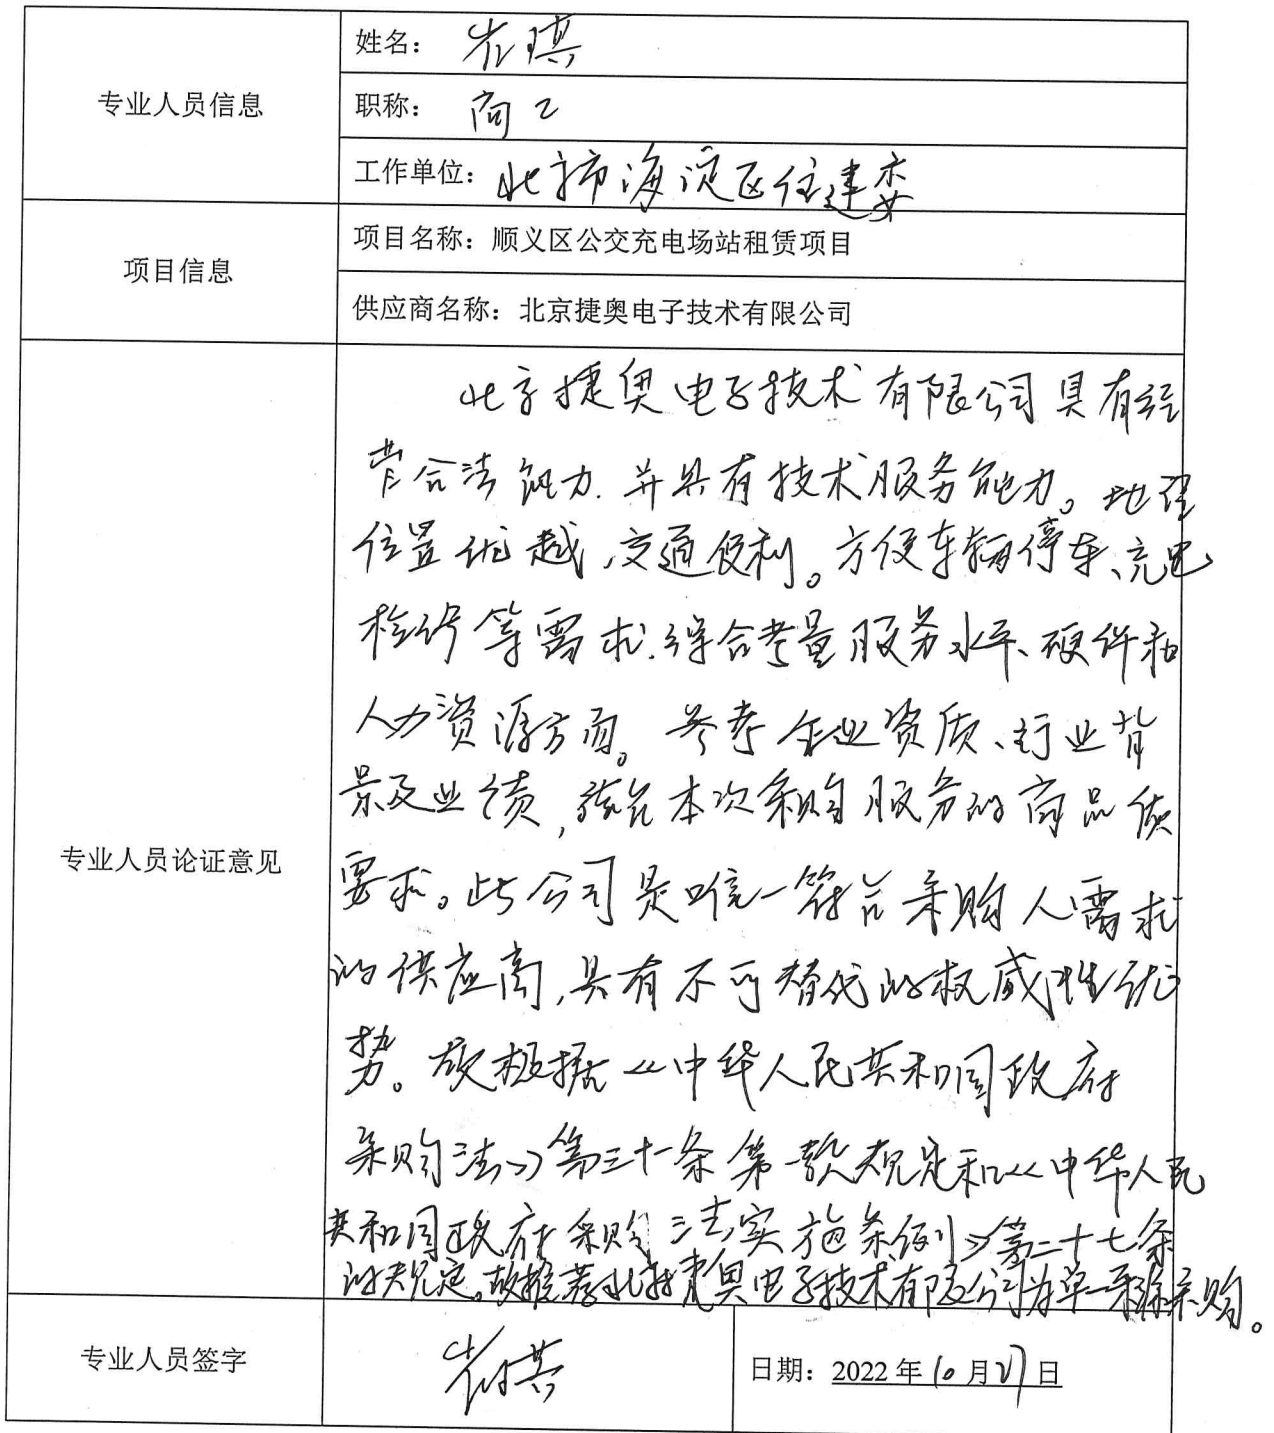 专业人员信息
姓名：崔琪
职称：高工
工作单位：北京市海淀区住建委
项目信息
项目名称：顺义区公交充电场站租赁项目
供应商名称：北京捷奥电子技术有限公司
专业人员论证意见
北京捷奥电子技术有限公司具有经
营合法能力.并具有技术服务能力。地理
位置优越,交通便利。方便车辆停车、充电
检修等需求.综合考量服务水平、硬件和
人力资源方面。参考企业资质、行业背
景及业绩,符合本次采购服务的商品质
要求。此公司是唯一符合采购人需求
的供应商,具有不可替代的权威性优
势。故根据《中华人民共和国政府
采购法》第三十一条第一款规定和《中华人民
共和国政府采购法实施条例》第二十七条
的规定。故推荐北京捷奥电子技术有限公司为单一来源采购。
专业人员签字
崔琪
日期：2022年10月27日